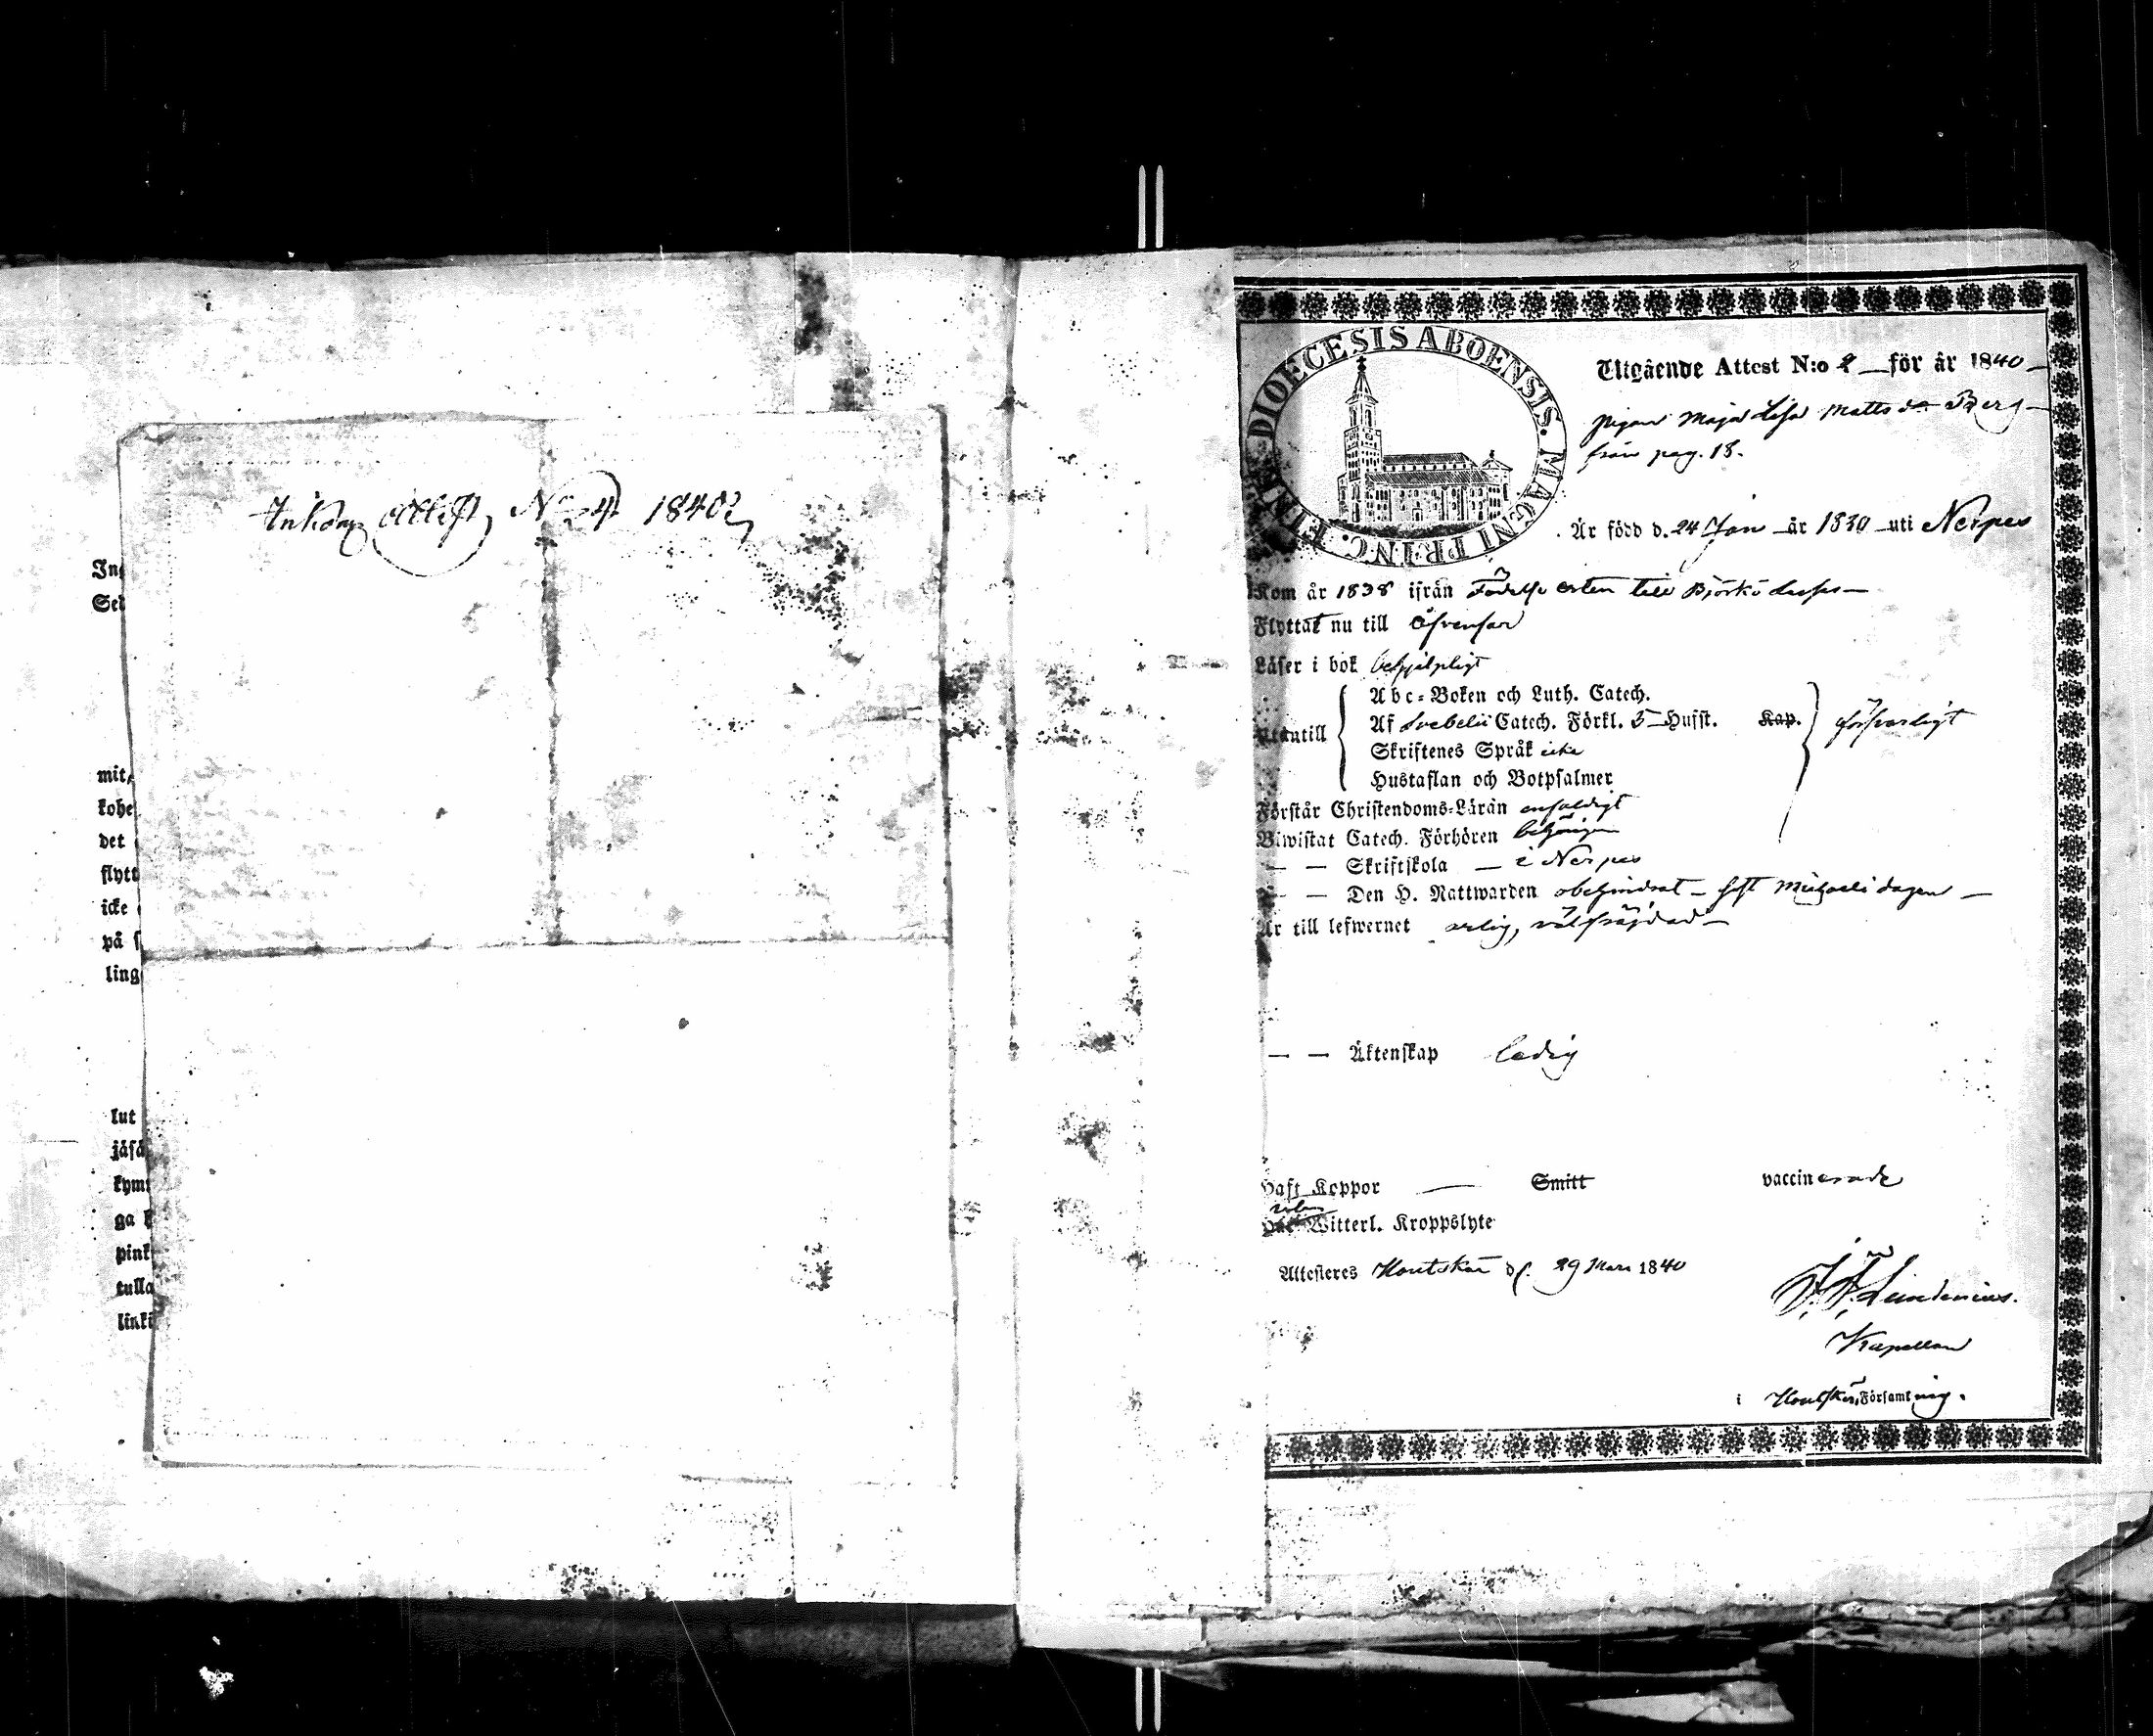 Inkom. Attest, N:o 4 1840
In
Sei
mit,
kohe
det
flytt
icke
på s
ling
lut
jäsä
kym
ga
pink
tulla
linki
DIOECESIS ABOENSIS. MAGNI PRINC. FINL.
Utgående Attest N:o 2 — för år 1840 —
pigan Maja Lisa Matts dr Berg —
från pag. 18.
Är född d. 24 Jan — år 1830 — uti Nerpes
Kom år 1838 ifrån Födelse orten till Björkö
Flyttat nu till
Läser i bok behjelpligt
Utantill
Abc-Boken och Luth. Catech.
Af Svebelii Catech. Förkl. 5 Hufst. Kap.
Skriftenes Språk icke
Hustaflan och Botpsalmer
försvarligt
Förstår Christendoms-Läran enfaldigt
Biwistat Catech. Förhören behörigen
— — Skriftskola — i Nerpes
— — Den H. Nattwarden obehindrat — sist Michaeli dagen —
Är till lefwernet ärlig, välfräjdad —
— — Äktenskap ledig
Haft Koppor — Smitt vaccinerade
utan
Witterl. Kroppslyte
Attesteres Houtskär d. 29 Mars 1840
Lindenius.
Kapellan
i Houtskär Församling.